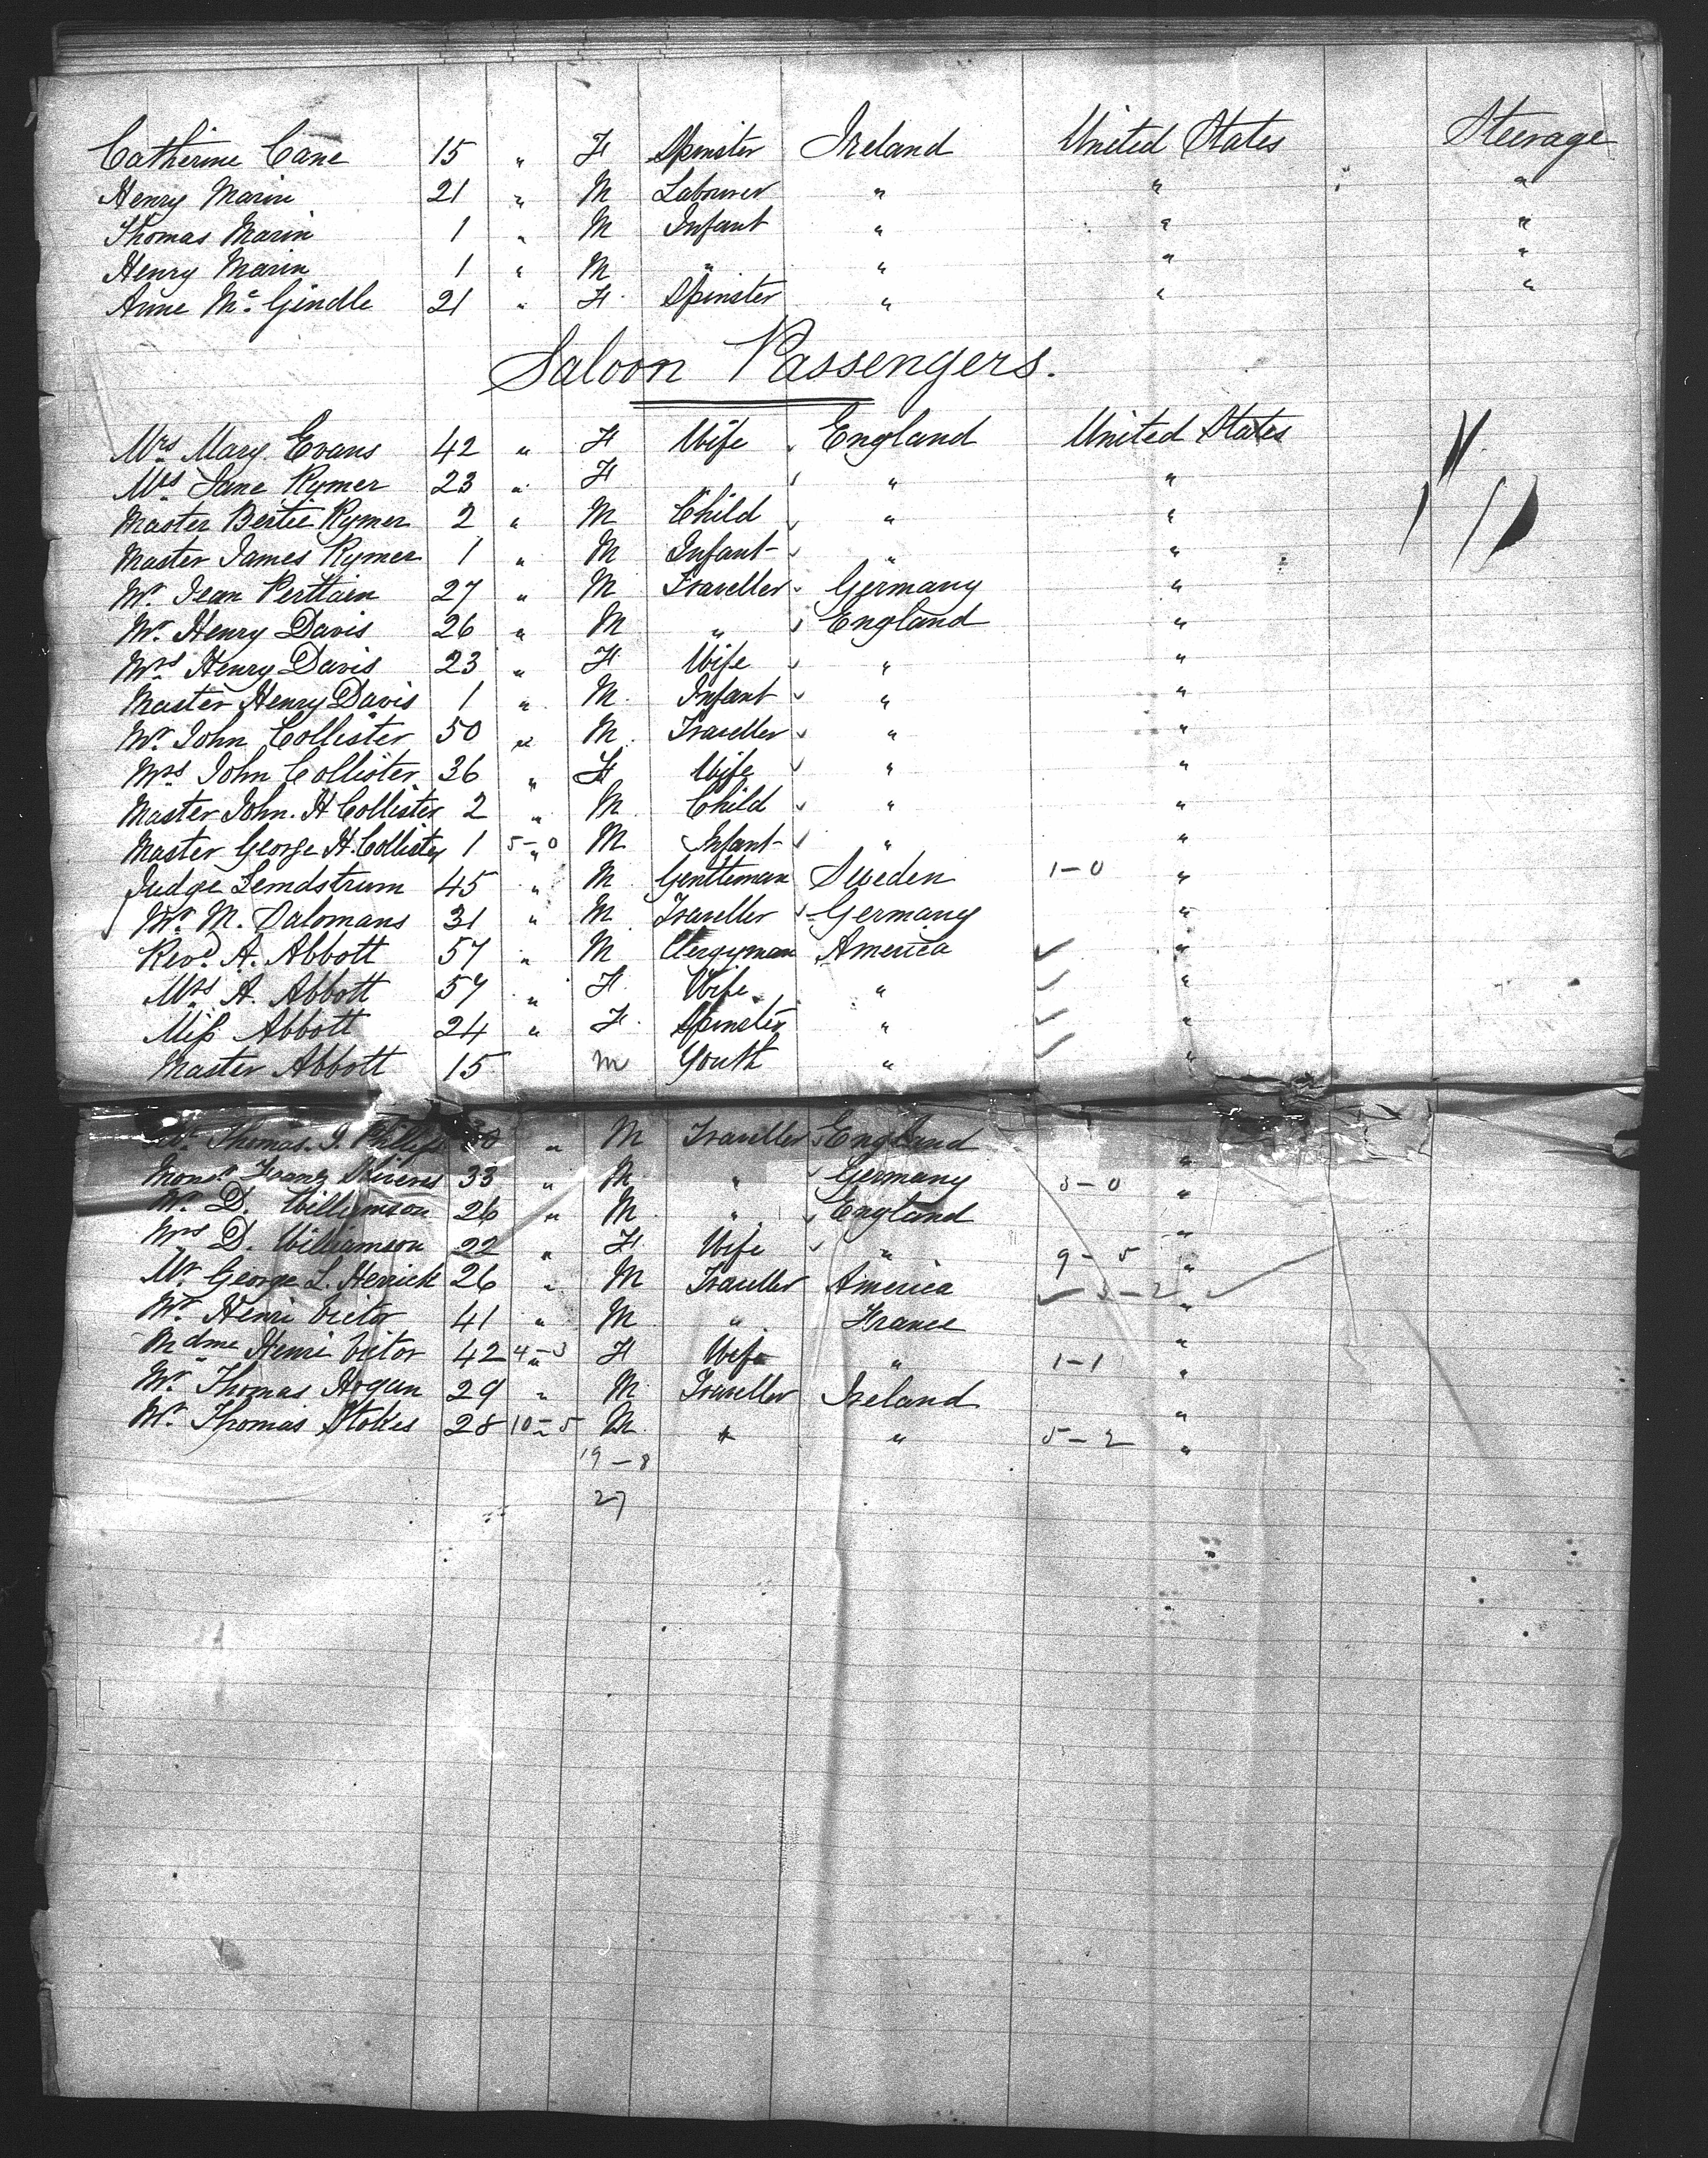 Catherine Cane 15 " F Spinster Ireland United States Steerage
Henry Marin 21 " M Labourer " " "
Thomas Marin 1 " M Infant " " "
Henry Marin 1 " M " " " "
Anne Mc Gindle 21 " F Spinster " " "
Saloon Passengers.
Mrs Mary Evans 42 " F Wife England United States
Mrs Jane Rymer 23 " F " "
Master Bertie Rymer 2 " M Child " "
Master James Rymer 1 " M Infant " "
Mr Jean Perttain 27 " M Traveller Germany "
Mr Henry Davis 26 " M " England "
Mrs Henry Davis 23 " F Wife " "
Master Henry Davis 1 " M Infant " "
Mr John Collister 50 " M Traveller " "
Mrs John Collister 36 " F Wife " "
Master John. H Collister 2 " M Child " "
Master George H. Collister 1 5-0 " M Infant " "
Judge Lemdstrum 45 " M Gentleman Sweden 1-0 "
Mr M. Salomans 31 " M Traveller Germany "
Revd A. Abbott 57 " M Clergyman America ✓ "
Mrs A. Abbott 57 " F Wife " ✓ "
Miss Abbott 24 " F Spinster " ✓ "
Master Abbott 15 m Youth " ✓ "
Mr Thomas. J. Phillips " M Traveller England "
Monsr Franz 33 " M " Germany 3-0 "
Mr D. Williamson 26 " M " England "
Mrs D. Williamson 22 " F Wife " 9-5 "
Mr George L. Herrick 26 " M Traveller America ✓ 3-2 ✓ "
Mr Henri Victor 41 " M " France "
Mdme Henri Victor 42 4-3 " F Wife " 1-1 "
Mr Thomas Hogan 29 " M Traveller Ireland "
Mr Thomas Stokes 28 10-5 " M " " 5-2 "
19-8
27